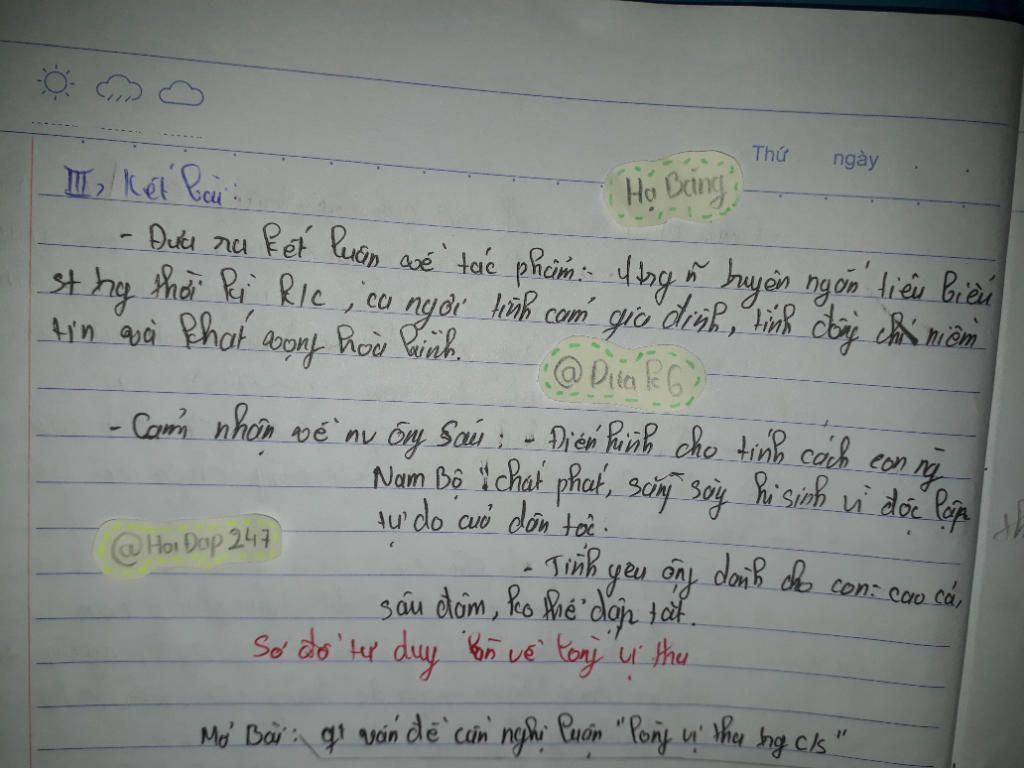 Thứ ngày
III, Kết bài:
Họ Băng
- Đưa ra kết luận về tác phẩm: 1 trg ~ truyện ngắn tiêu biểu
st trg thời kì k/c, ca ngợi tình cảm gia đình, tình đồng chí niềm
tin và khát vọng hòa bình.
@Dưa k6
- Cảm nhận về nv ông Sáu: - Điển hình cho tính cách con ng
Nam Bộ: chất phát, sẵn sàng hi sinh vì độc lập
tự do của dân tộc.
@HoiDap247
- Tình yêu ông dành cho con: cao cả,
sâu đậm, ko thể dập tắt.
Sơ đồ tư duy bàn về lòng vị tha
Mở Bài: gt vấn đề cần nghị luận "lòng vị tha trg c/s"